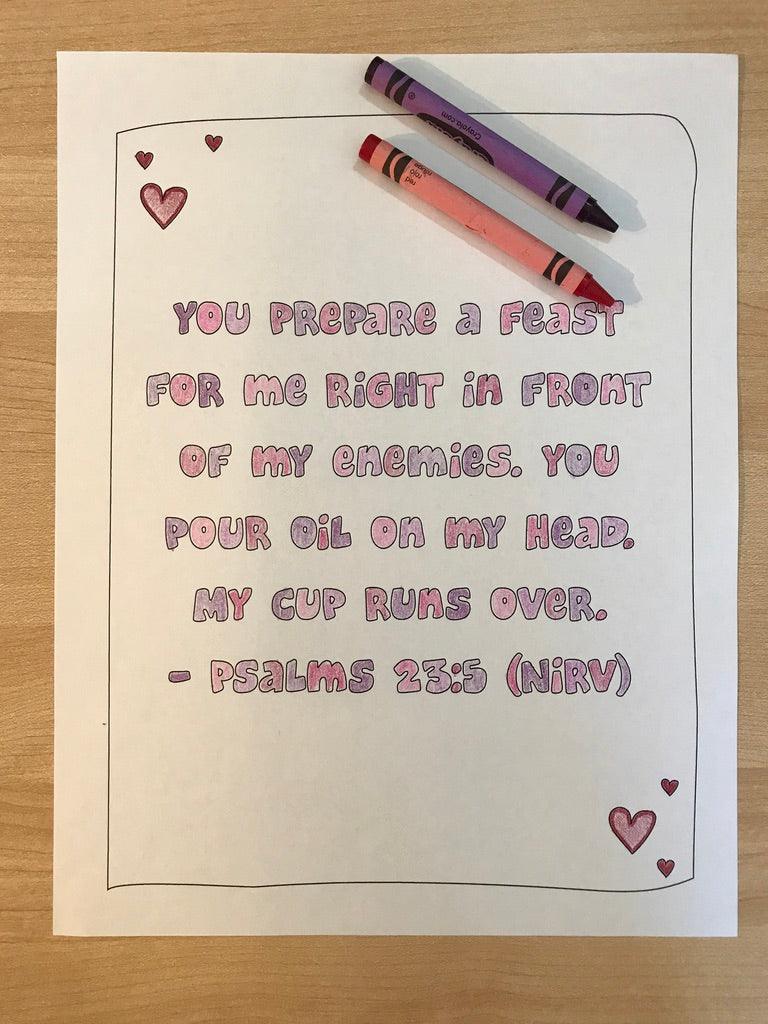 Crayola.com
red
rojo
rouge
YOU PREPARE A FEAST
FOR ME RIGHT IN FRONT
OF MY ENEMIES. YOU
POUR OIL ON MY HEAD.
MY CUP RUNS OVER.
- PSALMS 23:5 (NIRV)